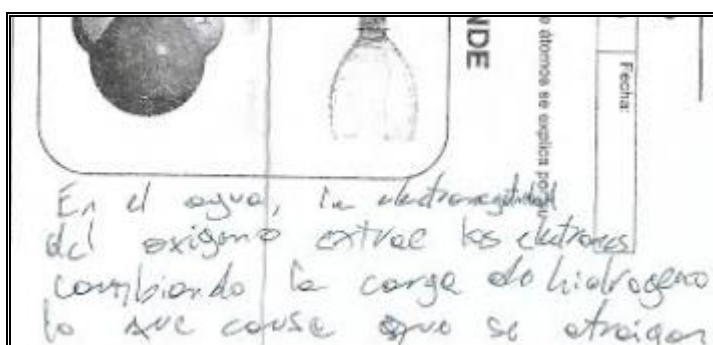 NDE
e átomos se explica por
Fecha:
En el agua, la electronegatividad
del oxigeno extrae los electrones
cambiando la carga do hidrogeno
lo que causa que se atraigan